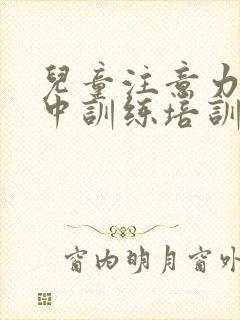 兒童注意力
中訓练培訓
窗内明月窗外